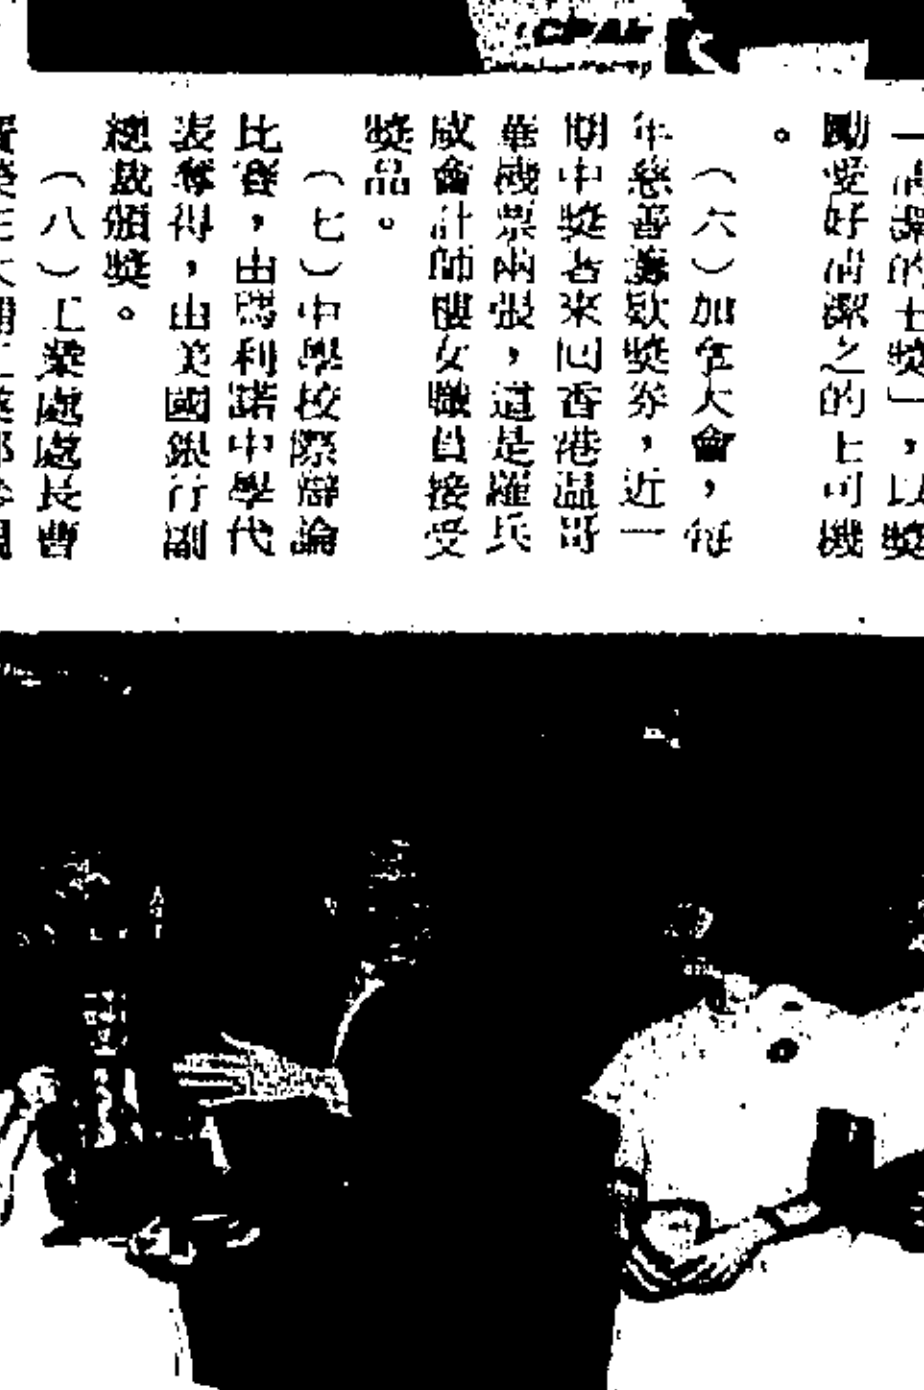 CPAir
清潔的士獎」,以獎
勵愛好清潔之的士司機
。
(六)加拿大會,每
年慈善籌款獎券,近一
期中獎者來回香港温哥
華機票兩張,這是羅兵
咸會計師樓女職員接受
獎品。
(七)中學校際辯論
比賽,由瑪利諾中學代
表奪得,由美國銀行副
總裁頒獎。
(八)工業處處長曹